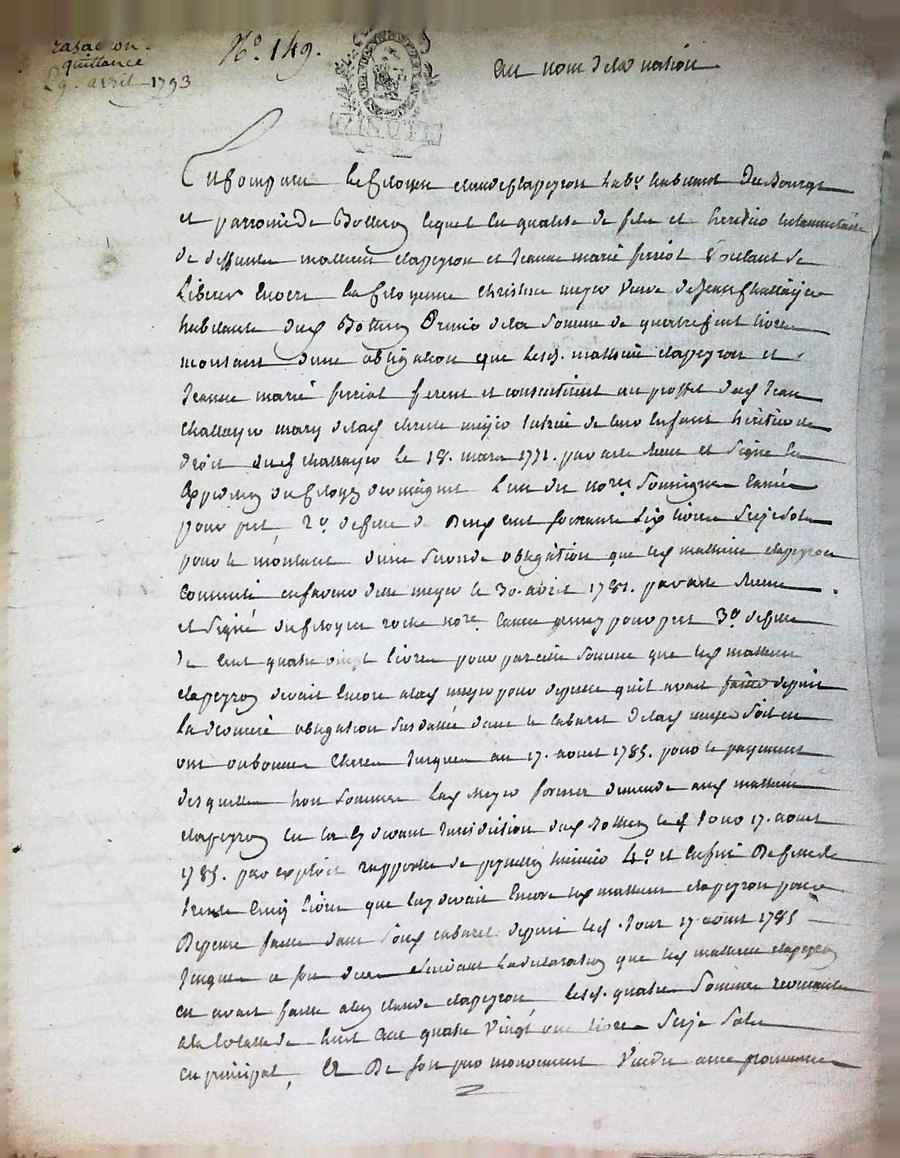 quittance
9. avril 1793
N.° 149.
au nom de la nation
le Citoyen claude Clapeyron hab. habitant du Bourg
et parroisse de Bothieu lequel en qualité de fils et
de deffunts mathieu clapeyron et Jeanne marie voulant se
liberer envers la Citoyenne Christine meyer veuve de Jean Challayer
habitante dud. Bothieu Primo de la somme de quatre cent livres
montant d'une obligation que lesd. mathieu clapeyron et
Jeanne marie firent et consentirent au proffit dud. Jean
Challayer mary de lad. meyer de leurs enfants
droit dud. Challayer le 18. mars 1771. par acte Reçu et signé
du Citoyen l'un des no.res soussignés
pour pret, 2.° de celle de Deux cent soixante six livres seize sols
pour le montant d'une seconde obligation que led. mathieu clapeyron
consentit en faveur de lad. meyer le 30. avril 1781. par acte Reçu
et signé du Citoyen roche no.re pour pret 3.° de celle
de cent quatre vingt livres pour pareille somme que led. mathieu
clapeyron devait encore a lad. meyer pour depense qu'il avait faitte depuis
la derniere obligation susdattée dans le cabaret de lad. meyer soit en
vin ou bonne Chere Jusques au 17. aout 1785. pour le payement
desquelles trois sommes lad. Meyer forma demande aud. mathieu
clapeyron en la cy devant Jurisdiction dud. Bothieu led. Jour 17. aout
1785. par exploit rapporté de huissier 4.° et enfin De celle de
trente cinq livres que luy devait encore led. mathieu clapeyron pour
Depense faitte dans son cabaret depuis led. Jour 17. aout 1785
Jusques a son deces suivant la declaration que led. mathieu clapeyron
en avait faitte a claude clapeyron lesd. quatre sommes revenantes
a la totalle de huit cent quatre vingt une livres seize sols
en principal, et